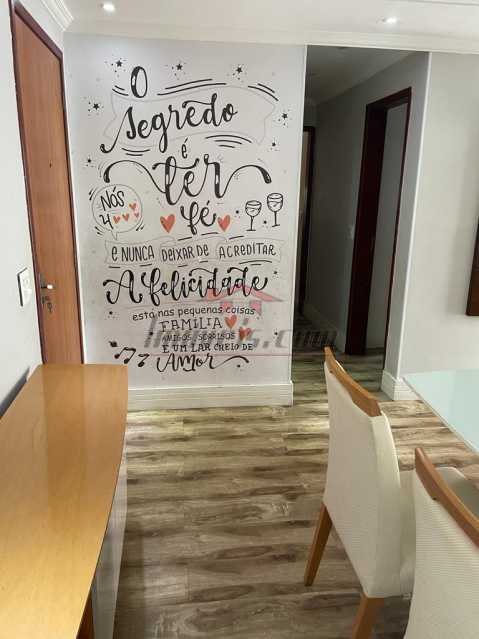 O
Segredo
é
ter
fé
Nós
4
E NUNCA DEIXAR DE ACREDITAR
A felicidade
está nas pequenas coisas
FAMÍLIA
AMIGOS, SORRISOS
E UM LAR CHEIO DE
AMOR